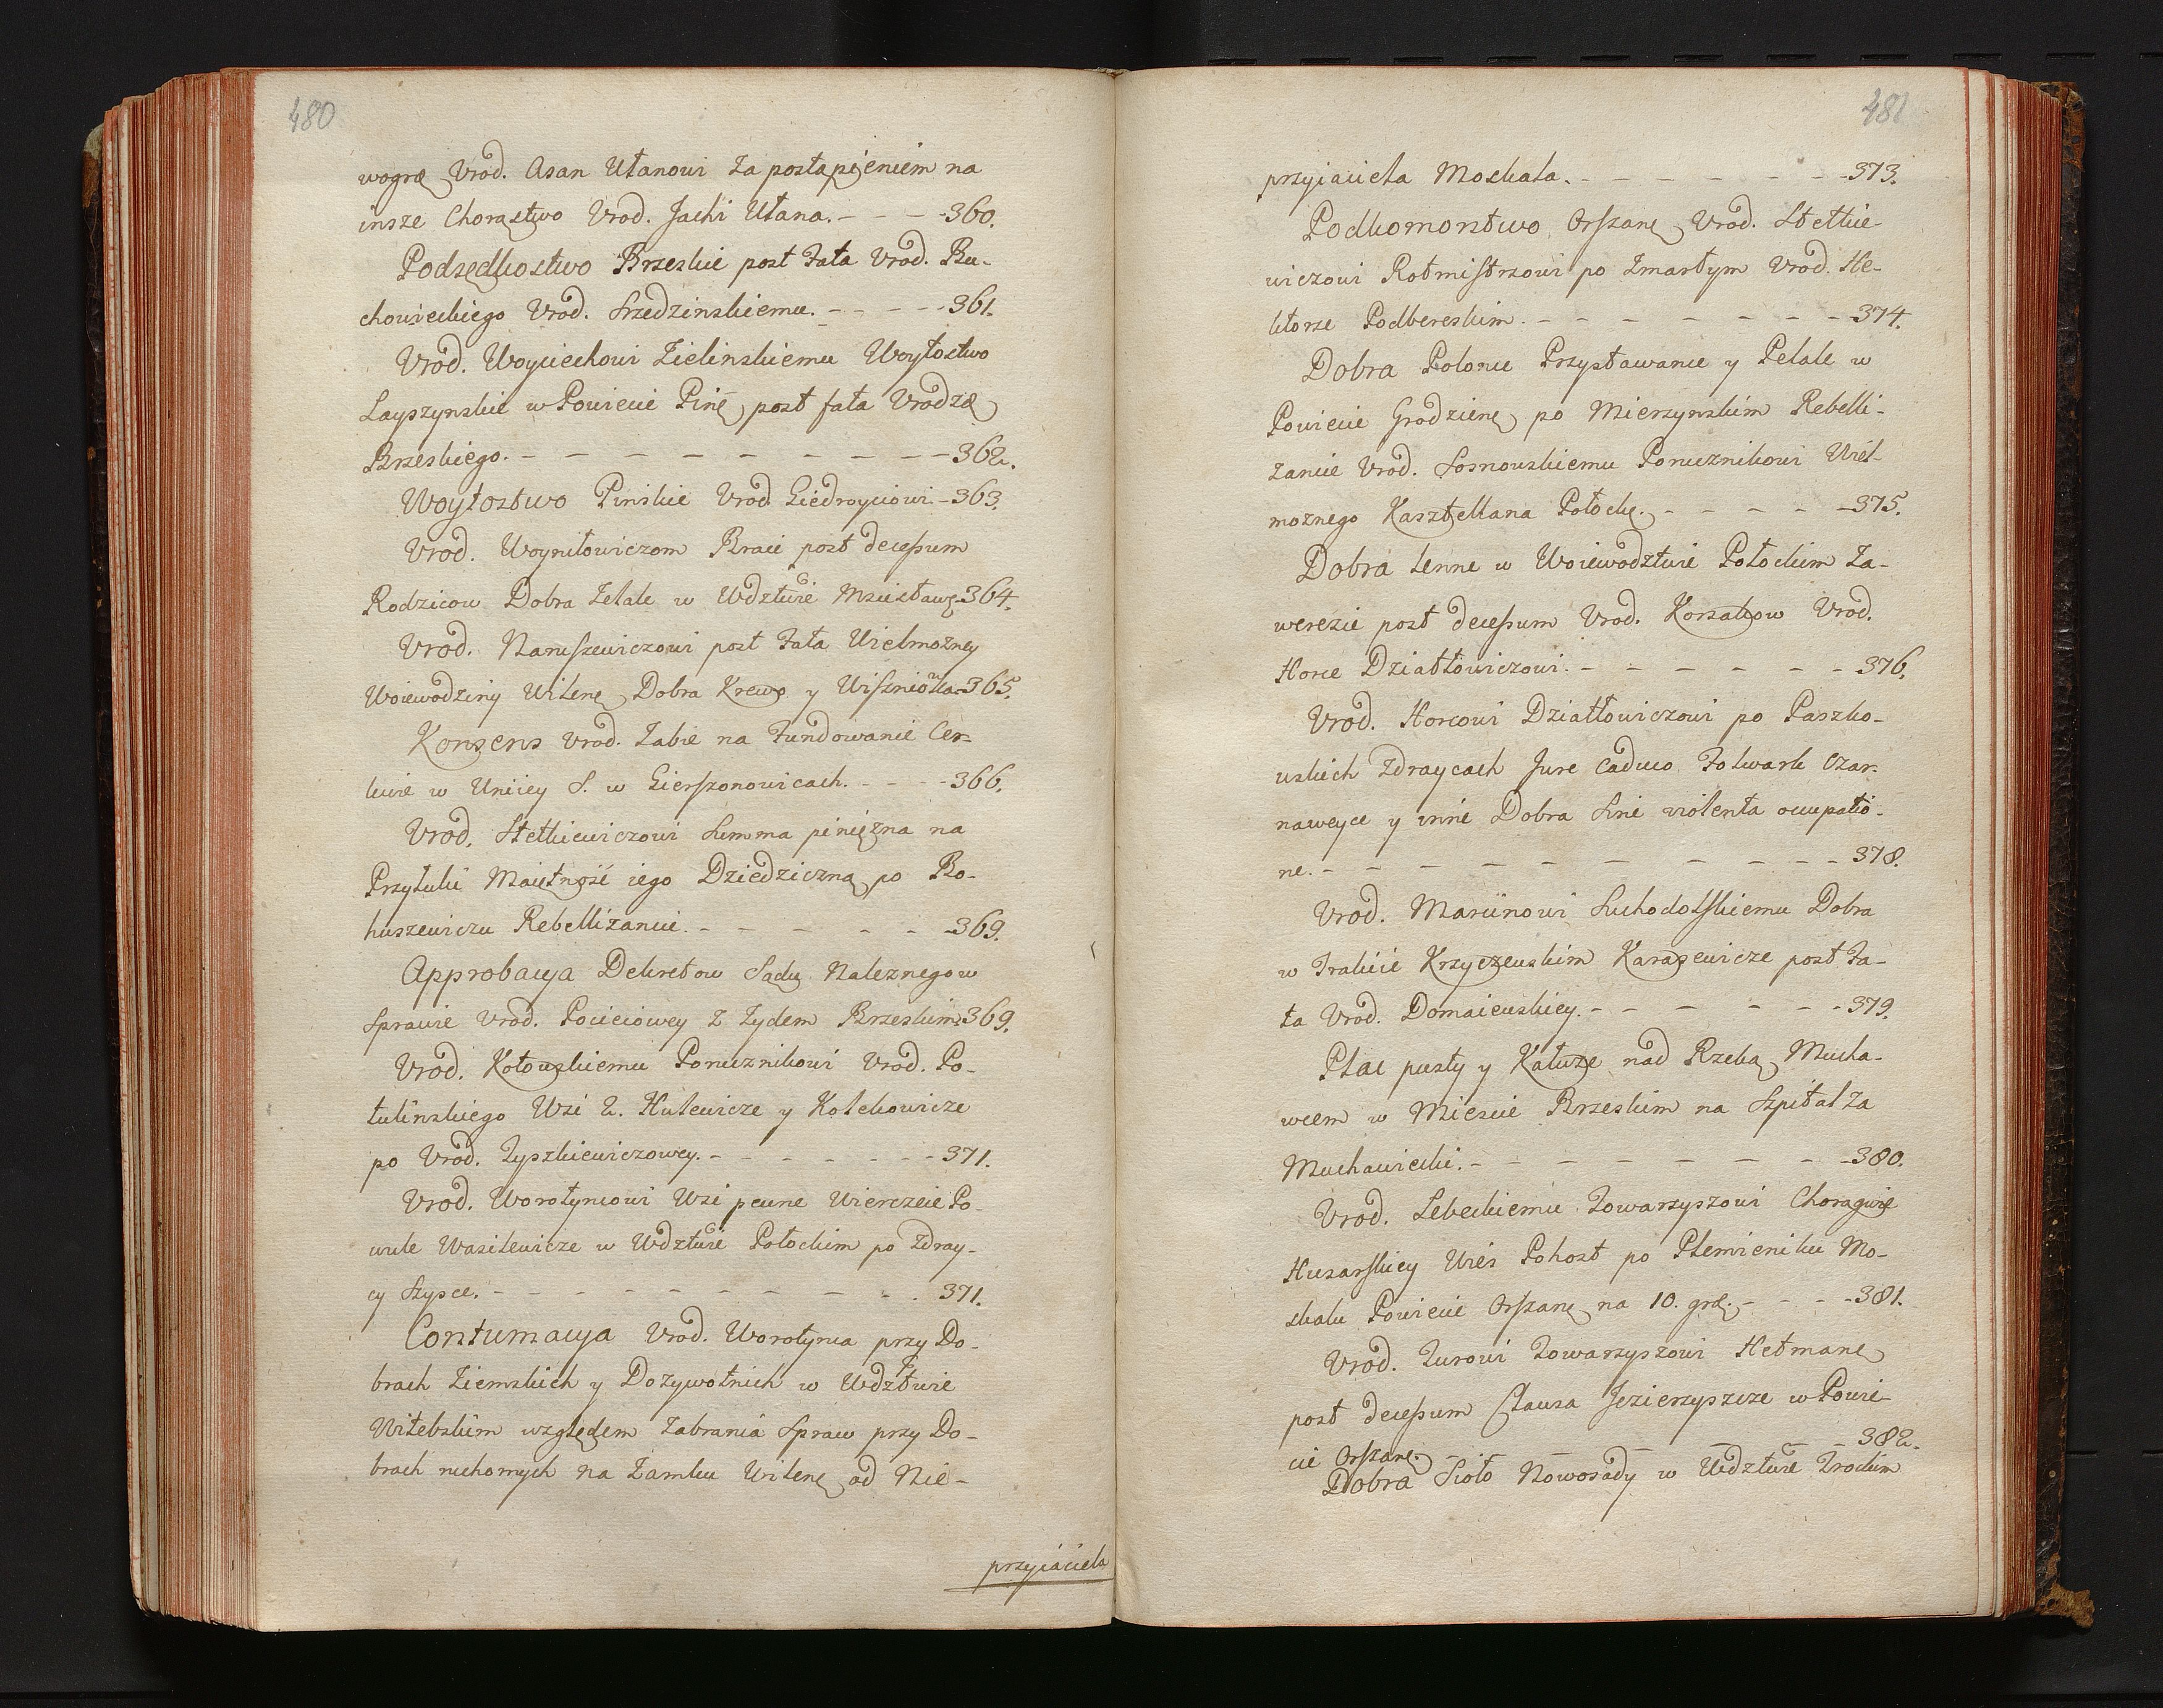 480
wogrɶ Vrod. Asan Ułanowi za postąpieniem na
insze Chorąstwo Vrod. Jachi Ułana. - - - 360.
Podsędkostwo Brzeskie post Fata Vrod. Bu-
chowieckiego Vrod. Srzedzinskiemu. - - - - 361.
Vrod. Woyciechowi Zielinskiemu Woytostwo
Layszynskie w Powiecie Pinę post fata Vrodzɶ
Brzeskiego. - - - - - - - - - 362.
Woytostwo Pinskie Vrod Giedroyciowi - 363.
Vrod. Woyniłowiczom Braci post decessum
Rodzicow Dobra Zelale w Wdztwie Mscisławę 364.
Vrod. Naruszewiczowi post Fata Wielmożney
Woiewodziny Wilenę Dobra Krewo y Wiszniowa 365.
Konsens Vrod. Zabie na Fundowanie Cer-
kwie w Uniiey S. w Gierszonowicach. - - - 366.
Vrod. Stetkiewiczowi Summa pinięzna na
Przytuki Maiętność iego Dziedziczną po Bo-
huszewiczu Rebellizancie. - - - - - 369.
Approbacya Dekretow Sądu Nalezne̦go w
Sprawie Vrod. Pocieiowey z Zydem Brzeskim 369.
Vrod. Kotowskiemu Porucznikowi Vrod. Po-
tulinskiego Wsi 2. Hulewicze y Kolchowicze
po Vrod. Tyszkiewiczowey. - - - - - - 371.
Vrod. Worotyncowi Wsi pewne Wierzcie Po-
wule Wasilewicze w Wdztwie Połockim po Zdray-
cy Szysce. - - - - - - - - - 371.
Contumacya Vrod. Worotynca przy Do-
brach Ziemskich y Dozywotnich w Wdztwie
Witebskim względem Zabrania Spraw przy Do-
brach ruchomych na Zamku Wilenę od Nie-
przyiaciela
481
przyiaciela Moskala. - - - - - - 373.
Podkomorstwo Orszanę Vrod. Stetkie-
wiczowi Rotmistrzowi po Zmarłym Vrod. He-
ktorze Podbereskim. - - - - - - - 374.
Dobra Polonce Przystawance y Pelale w
Powiecie Grodzienę po Mierzynskim Rebelli-
zancie Vrod. Sosnowskiemu Porucznikowi Wiel-
moznego Kasztellana Połockę. - - - - - 375.
Dobra lenne w Woiewodztwie Połockim Za-
werezie post decessum Vrod. Korsakow Vrod.
Horce Działłowiczowi. - - - - - - 376.
Vrod. Horcowi Działłowiczowi po Paszko-
wskich Zdraycach Jure Caduco Folwark Czar-
naweyce y inne Dobra Sine violenta occupatio-
ne. - - - - - - - - - 378.
Vrod. Marcinowi Suchodolskiemu Dobra
w Trakcie Krzyczewskim Karasewicze post Fa-
ta Vrod. Domaiewskiey. - - - - - - 379.
Plac pusty y Kałuze nad Rzeką Mucha-
wcem w Miescie Brzeskim na Szpital Za
Muchawiecki. - - - - - - - 380.
Vrod. Lebeckiemu Towarzyszowi Chorągwie
Husarskiey Wieś Pohost po Plemieniku Mo-
skalu Powiecie Orszanę na 10. grɶ. - - - - 381.
Vrod. Zurowi Towarzyszowi Hetmanę
post decessum Clausa Jezierzyszcze w Powie-
cie Orszanę. - - - - - 382.
Dobra Sioło Nowosady w Wdztwie Trockim